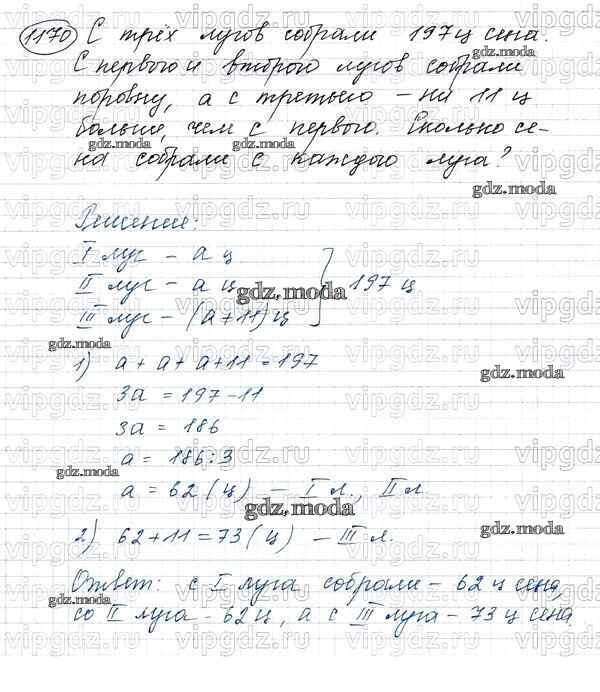 1170 С трёх лугов собрали 197 ц сена.
С первого и второго лугов собрали
поровну, а с третьего – на 11 ц
больше, чем с первого. Сколько се-
на собрали с каждого луга?
Решение:
I луг – a ц
II луг – a ц
III луг – (a+11) ц
197 ц
1) a + a + a + 11 = 197
3a = 197 - 11
3a = 186
a = 186 : 3
a = 62 (ц) – I л., II л.
2) 62 + 11 = 73 (ц) – III л.
Ответ: с I луга собрали – 62 ц сена,
со II луга – 62 ц, а с III луга – 73 ц сена.
gdz.moda
vipgdz.ru